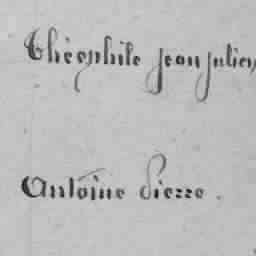 Théophile Jean Julien
Antoine Pierre.